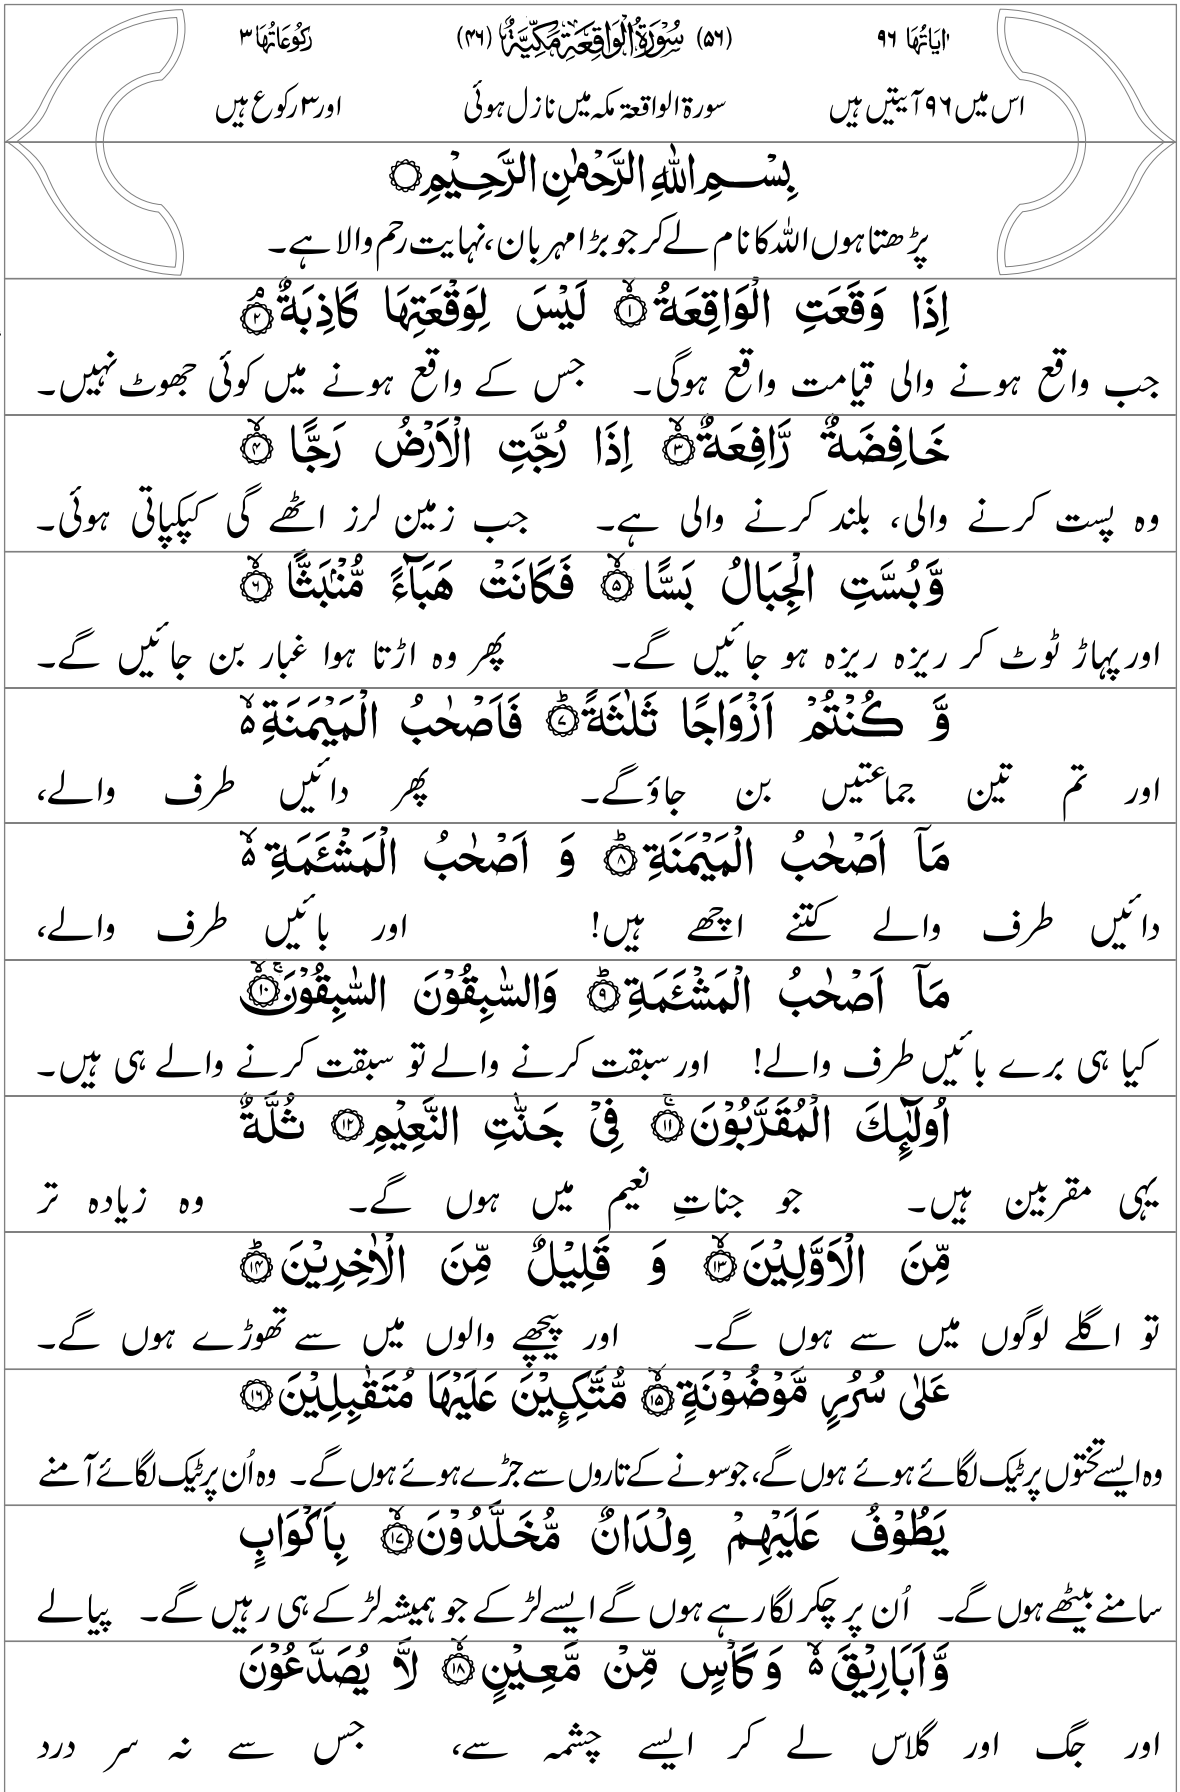 اٰيَاتُهَا ٩٦ (٥٦) سُوْرَةُ الْوَاقِعَةِ مَكِّيَّةٌ (٤٦) رُكُوْعَاتُهَا ٣
اس میں ۹۶ آیتیں ہیں سورۃ الواقعۃ مکہ میں نازل ہوئی اور ۳ رکوع ہیں
بِسْمِ اللّٰهِ الرَّحْمٰنِ الرَّحِيْمِ
پڑھتا ہوں اللہ کا نام لے کر جو بڑا مہربان، نہایت رحم والا ہے۔
اِذَا وَقَعَتِ الْوَاقِعَةُ ۙ﴿١﴾ لَيْسَ لِوَقْعَتِهَا كَاذِبَةٌ ۘ﴿٢﴾
جب واقع ہونے والی قیامت واقع ہوگی۔ جس کے واقع ہونے میں کوئی جھوٹ نہیں۔
خَافِضَةٌ رَّافِعَةٌ ۙ﴿٣﴾ اِذَا رُجَّتِ الْاَرْضُ رَجًّا ۙ﴿٤﴾
وہ پست کرنے والی، بلند کرنے والی ہے۔ جب زمین لرز اٹھے گی کپکپاتی ہوئی۔
وَّبُسَّتِ الْجِبَالُ بَسًّا ۙ﴿٥﴾ فَكَانَتْ هَبَآءً مُّنْۢبَثًّا ۙ﴿٦﴾
اور پہاڑ ٹوٹ کر ریزہ ریزہ ہو جائیں گے۔ پھر وہ اڑتا ہوا غبار بن جائیں گے۔
وَّ كُنْتُمْ اَزْوَاجًا ثَلٰثَةً ؕ﴿٧﴾ فَاَصْحٰبُ الْمَيْمَنَةِ ۙ۬
اور تم تین جماعتیں بن جاؤ گے۔ پھر دائیں طرف والے،
مَاۤ اَصْحٰبُ الْمَيْمَنَةِ ؕ﴿٨﴾ وَ اَصْحٰبُ الْمَشْـَٔمَةِ ۙ۬
دائیں طرف والے کتنے اچھے ہیں! اور بائیں طرف والے،
مَاۤ اَصْحٰبُ الْمَشْـَٔمَةِ ؕ﴿٩﴾ وَالسّٰبِقُوْنَ السّٰبِقُوْنَ ۚۙ﴿١٠﴾
کیا ہی برے بائیں طرف والے! اور سبقت کرنے والے تو سبقت کرنے والے ہی ہیں۔
اُولٰٓئِكَ الْمُقَرَّبُوْنَ ۚ﴿١١﴾ فِيْ جَنّٰتِ النَّعِيْمِ ﴿١٢﴾ ثُلَّةٌ
یہی مقربین ہیں۔ جو جناتِ نعیم میں ہوں گے۔ وہ زیادہ تر
مِّنَ الْاَوَّلِيْنَ ۙ﴿١٣﴾ وَ قَلِيْلٌ مِّنَ الْاٰخِرِيْنَ ؕ﴿١٤﴾
تو اگلے لوگوں میں سے ہوں گے۔ اور پیچھے والوں میں سے تھوڑے ہوں گے۔
عَلٰى سُرُرٍ مَّوْضُوْنَةٍ ۙ﴿١٥﴾ مُّتَّكِـِٕيْنَ عَلَيْهَا مُتَقٰبِلِيْنَ ﴿١٦﴾
وہ ایسے تختوں پر ٹیک لگائے ہوئے ہوں گے، جو سونے کے تاروں سے جڑے ہوئے ہوں گے۔ وہ اُن پر ٹیک لگائے آمنے
يَطُوْفُ عَلَيْهِمْ وِلْدَانٌ مُّخَلَّدُوْنَ ۙ﴿١٧﴾ بِاَكْوَابٍ
سامنے بیٹھے ہوں گے۔ اُن پر چکر لگا رہے ہوں گے ایسے لڑکے جو ہمیشہ لڑکے ہی رہیں گے۔ پیالے
وَّاَبَارِيْقَ ۙ۬ وَكَاْسٍ مِّنْ مَّعِيْنٍ ۙ﴿١٨﴾ لَّا يُصَدَّعُوْنَ
اور جگ اور گلاس لے کر ایسے چشمہ سے، جس سے نہ سر درد